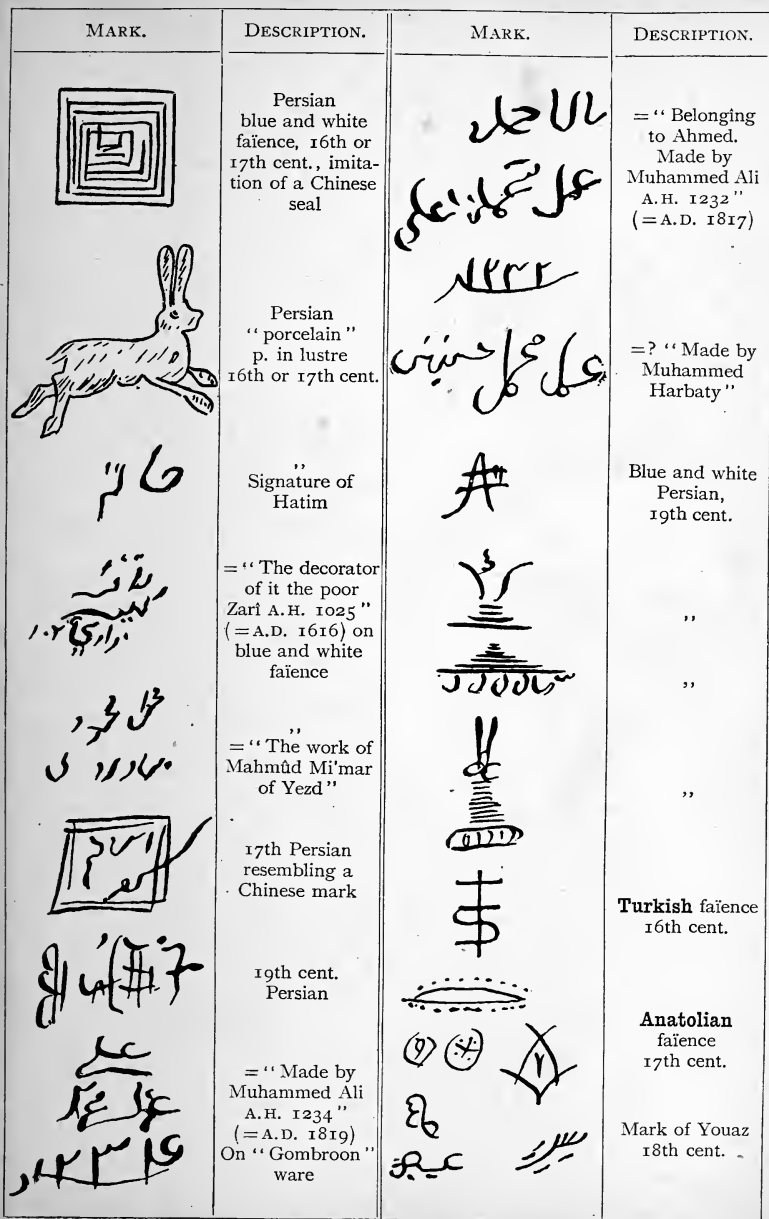 MARK.
DESCRIPTION.
Persian
blue and white
faïence, 16th or
17th cent., imita-
tion of a Chinese
seal
Persian
"porcelain"
p. in lustre
16th or 17th cent.
حاتم
,,
Signature of
Hatim
= "The decorator
of it the poor
Zarî A.H. 1025"
(=A.D. 1616) on
blue and white
faïence
,,
= "The work of
Mahmûd Mi'mar
of Yezd"
17th Persian
resembling a
Chinese mark
19th cent.
Persian
علي
عمل محمد
۱۲۳۴
= "Made by
Muhammed Ali
A.H. 1234"
(=A.D. 1819)
On "Gombroon"
ware
MARK.
DESCRIPTION.
عمل محمد علي
۱۲۳۲
= "Belonging
to Ahmed.
Made by
Muhammed Ali
A.H. 1232"
(=A.D. 1817)
عمل محمد
=? "Made by
Muhammed
Harbaty"
Blue and white
Persian,
19th cent.
,,
,,
,,
Turkish faïence
16th cent.
Anatolian
faïence
17th cent.
Mark of Youaz
18th cent.